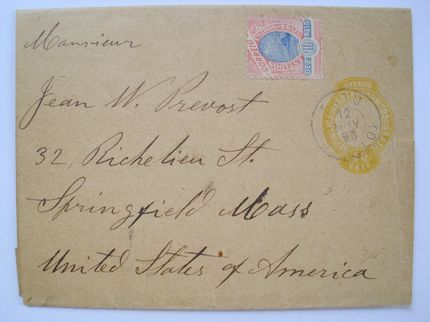 Monsieur
Jean W. Prevost
32, Richelieu St.
Springfield Mass
United States of America
CORREIO